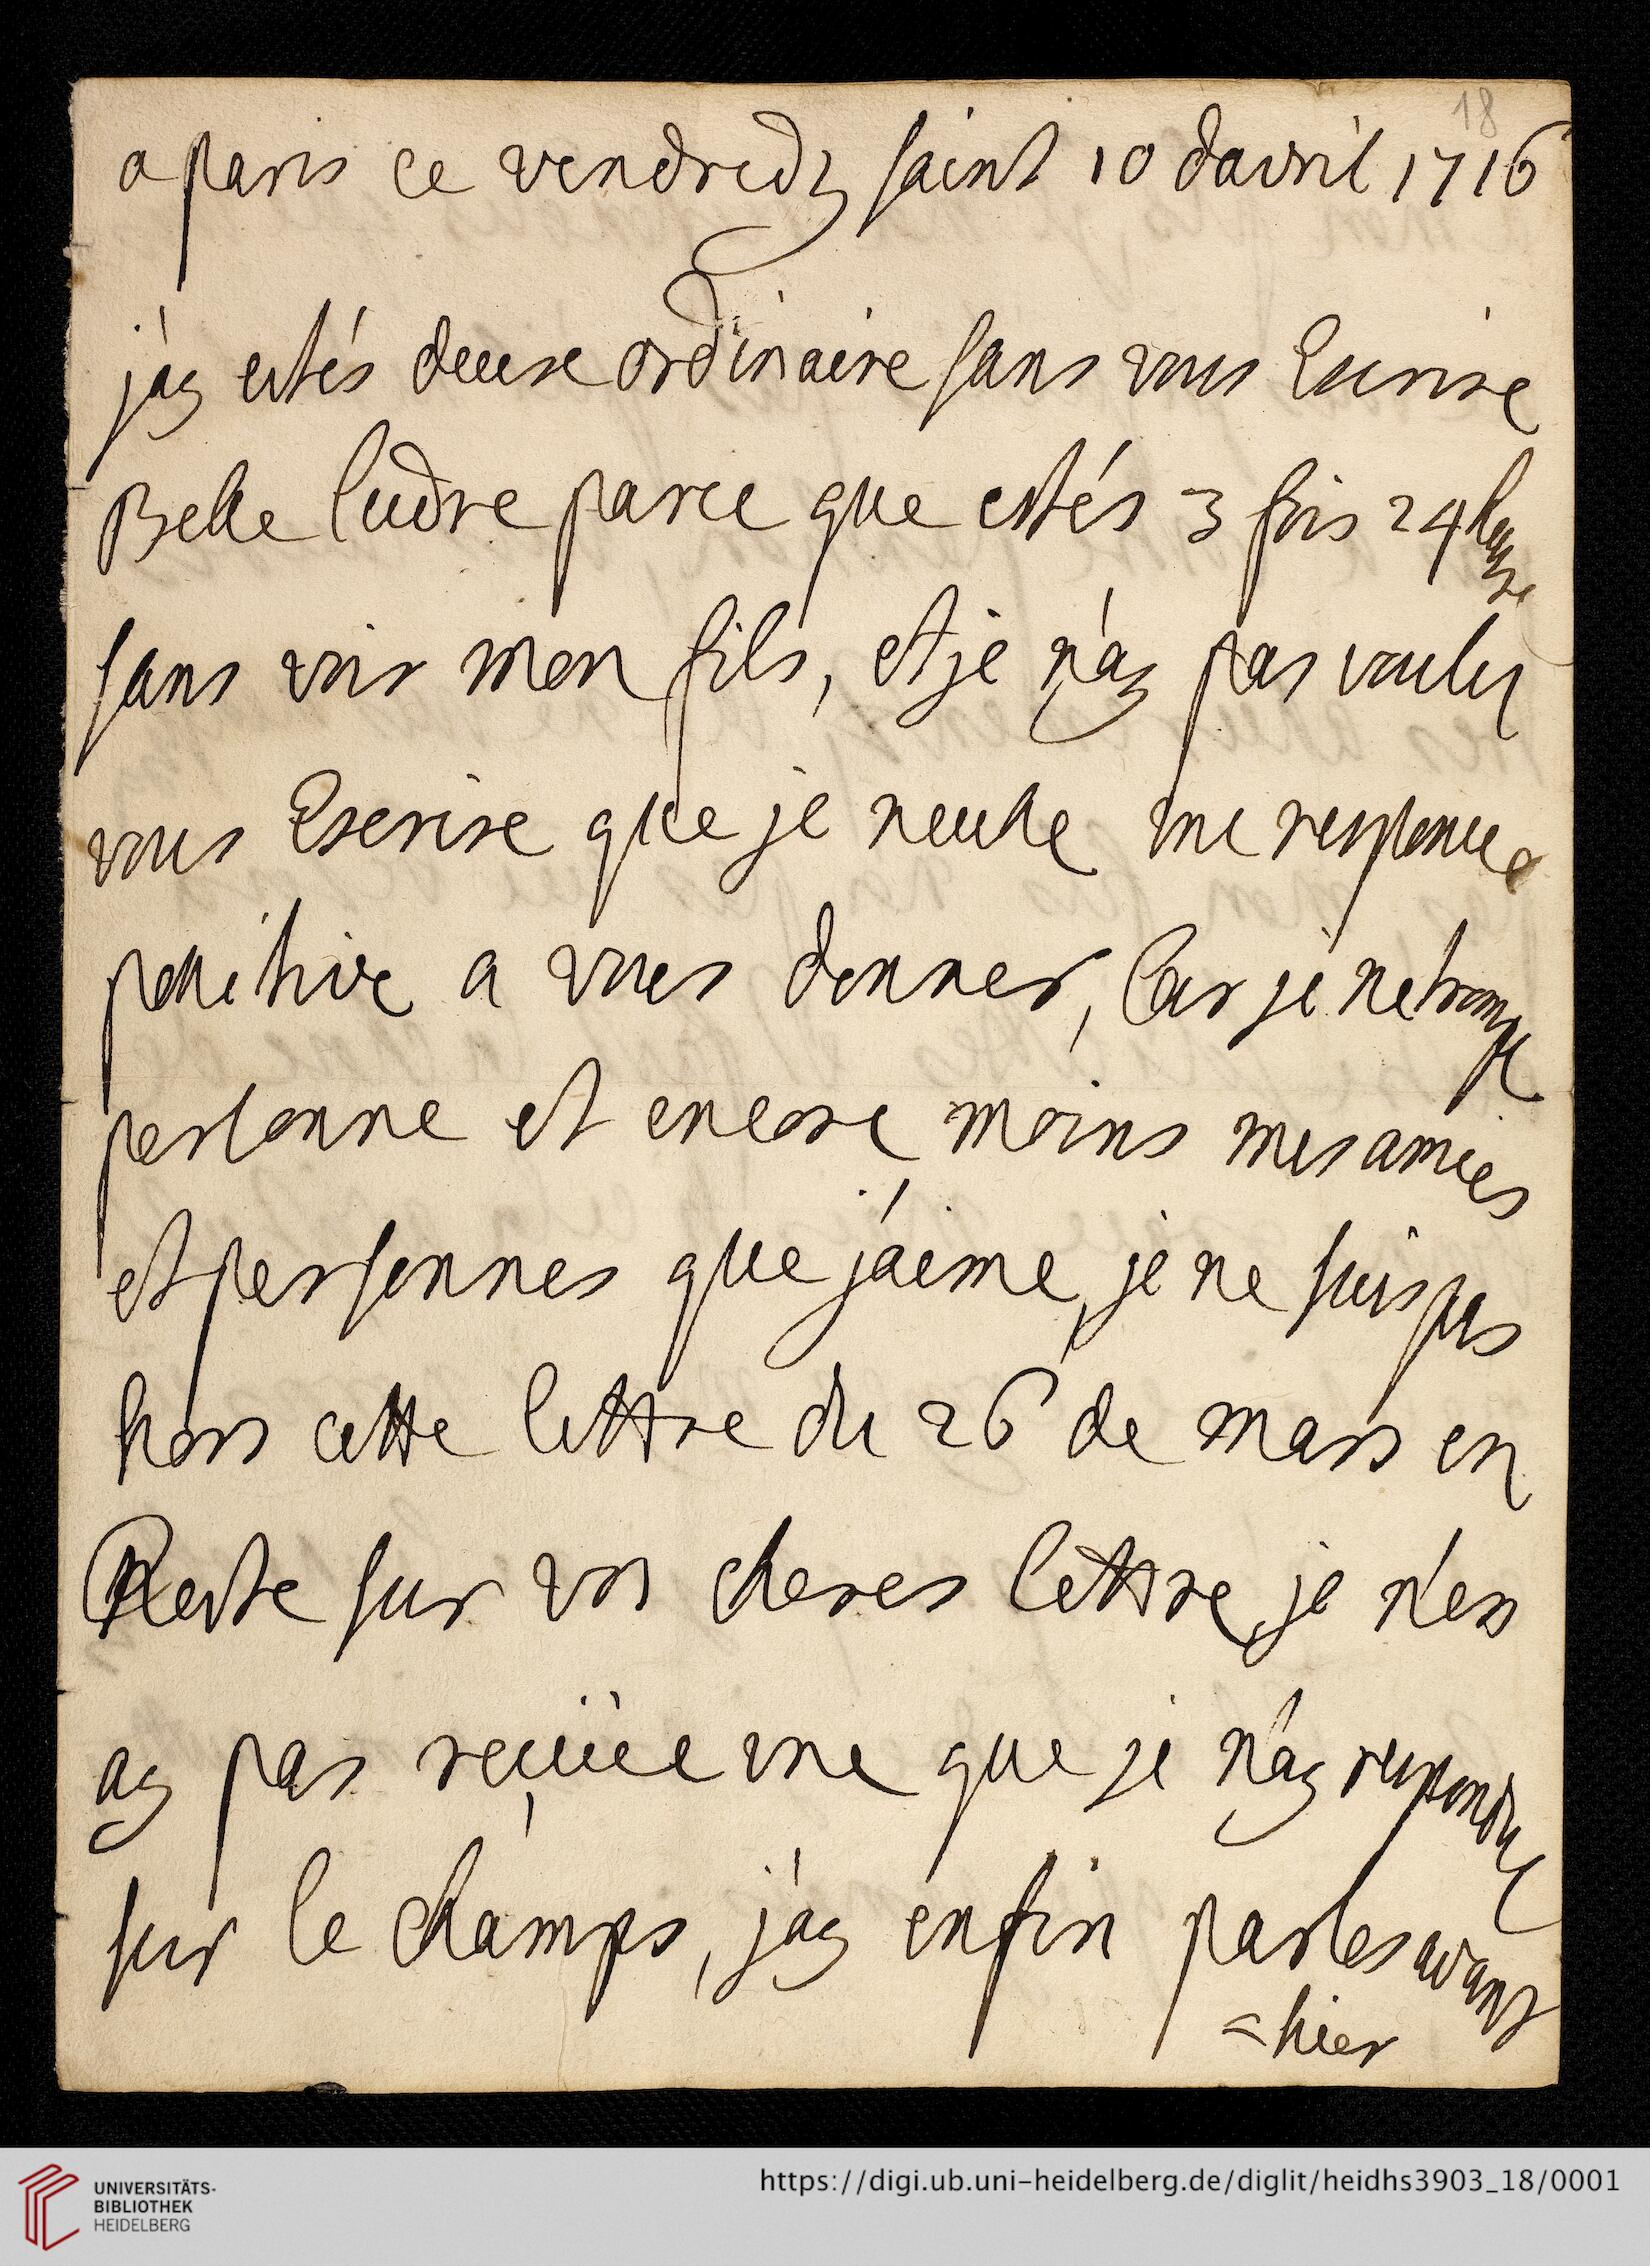 18
a paris ce vendredy saint 10 davril 1716
j'ay estés deuse ordinaire sans vous Escrire
Belle ludre parce que estés 3 fois 24 heure
sans voir mon fils, et je n'ay pas voulu
vous Escrire que je neusse une responce
possitive a vous donner, Car je ne trompe
personne et encore moins mes amies
et personnes que j'aime, je ne suis pas
hors cette lettre du 26 de mars en
Reste sur vos cheres lettre, je n'en
ay pas reçüe une que je n'ay respondu
sur le champs, j'ay enfin parles avant
=hier
UNIVERSITÄTS-
BIBLIOTHEK
HEIDELBERG
https://digi.ub.uni-heidelberg.de/diglit/heidhs3903_18/0001